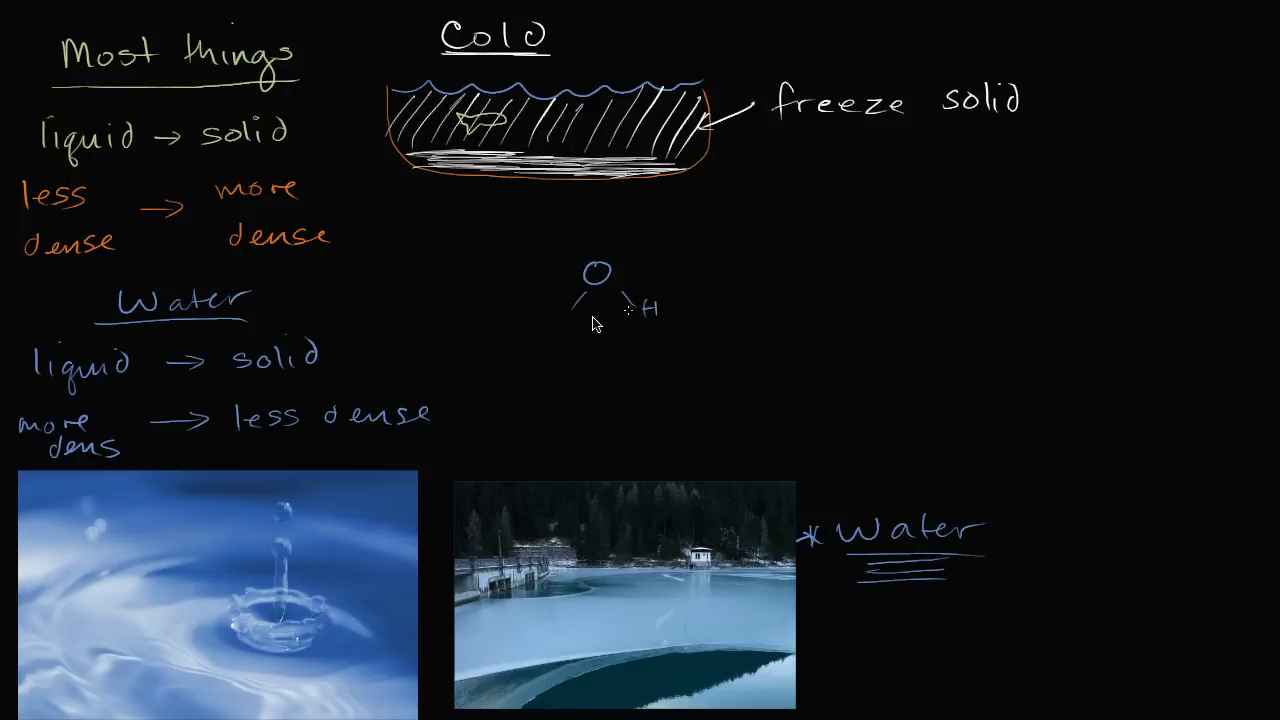 Most things
liquid → solid
less dense → more dense
Water
liquid → solid
more dens → less dense
Cold
freeze solid
O
H
* Water